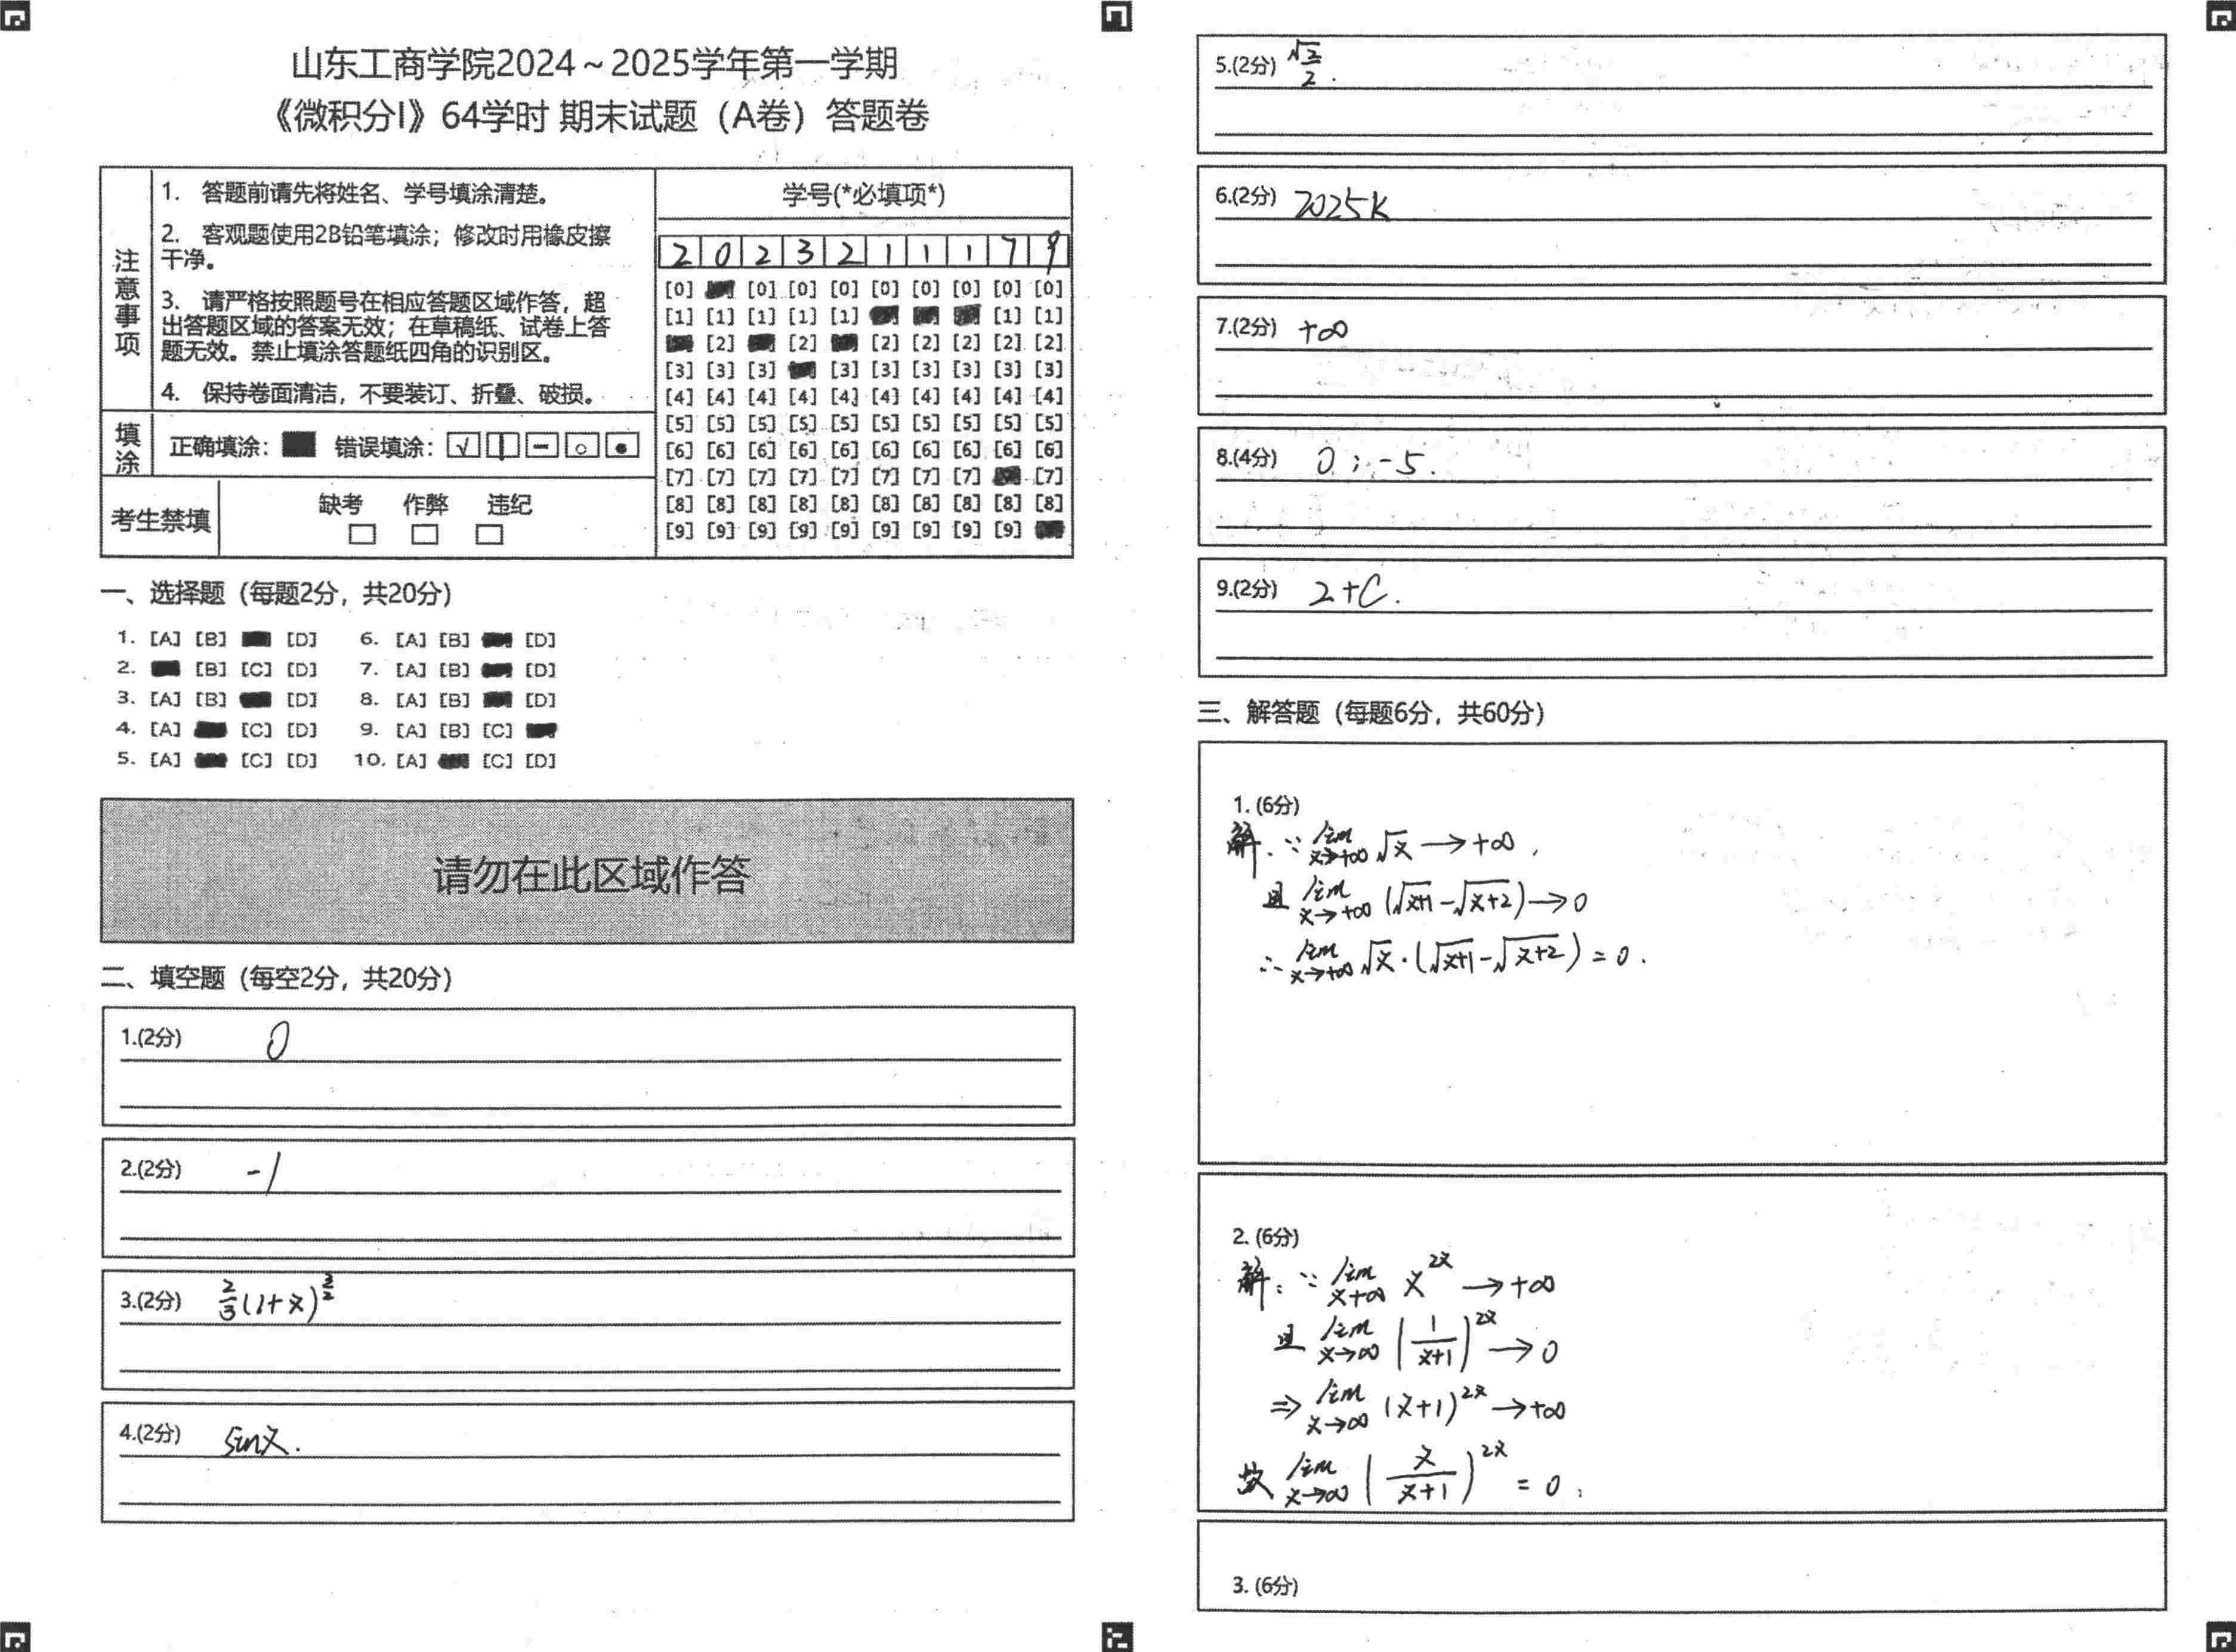 山东工商学院2024～2025学年第一学期
《微积分I》64学时 期末试题（A卷）答题卷
注意事项
1. 答题前请先将姓名、学号填涂清楚。
2. 客观题使用2B铅笔填涂；修改时用橡皮擦
干净。
3. 请严格按照题号在相应答题区域作答，超
出答题区域的答案无效；在草稿纸、试卷上答
题无效。禁止填涂答题纸四角的识别区。
4. 保持卷面清洁，不要装订、折叠、破损。
填涂 正确填涂： 错误填涂：
考生禁填 缺考 作弊 违纪
学号(*必填项*)
2 0 2 3 2 1 1 1 7 9
[0] [0] [0] [0] [0] [0] [0] [0] [0]
[1] [1] [1] [1] [1] [1] [1]
[2] [2] [2] [2] [2] [2] [2]
[3] [3] [3] [3] [3] [3] [3] [3] [3]
[4] [4] [4] [4] [4] [4] [4] [4] [4] [4]
[5] [5] [5] [5] [5] [5] [5] [5] [5] [5]
[6] [6] [6] [6] [6] [6] [6] [6] [6] [6]
[7] [7] [7] [7] [7] [7] [7] [7] [7]
[8] [8] [8] [8] [8] [8] [8] [8] [8] [8]
[9] [9] [9] [9] [9] [9] [9] [9] [9]
一、选择题（每题2分，共20分）
1. [A] [B] [D] 6. [A] [B] [D]
2. [B] [C] [D] 7. [A] [B] [D]
3. [A] [B] [D] 8. [A] [B] [D]
4. [A] [C] [D] 9. [A] [B] [C]
5. [A] [C] [D] 10. [A] [C] [D]
请勿在此区域作答
二、填空题（每空2分，共20分）
1.(2分) 0
2.(2分) -1
3.(2分) $\frac{2}{3}(1+x)^{\frac{3}{2}}$
4.(2分) sinx.
5.(2分) $\frac{\sqrt{2}}{2}$.
6.(2分) 2025K
7.(2分) +∞
8.(4分) 0；-5.
9.(2分) 2+C.
三、解答题（每题6分，共60分）
1. (6分)
解. ∵ $\lim_{x→+∞} \sqrt{x}$ → +∞，
且 $\lim_{x→+∞} (\sqrt{x+1}-\sqrt{x+2})$ → 0
∴ $\lim_{x→+∞} \sqrt{x}·(\sqrt{x+1}-\sqrt{x+2})$ = 0.
2. (6分)
解：∵ $\lim_{x+∞} x^{2x}$ → +∞
且 $\lim_{x→∞} (\frac{1}{x+1})^{2x}$ → 0
⇒ $\lim_{x→∞} (x+1)^{2x}$ → +∞
故 $\lim_{x→∞} (\frac{x}{x+1})^{2x}$ = 0；
3. (6分)